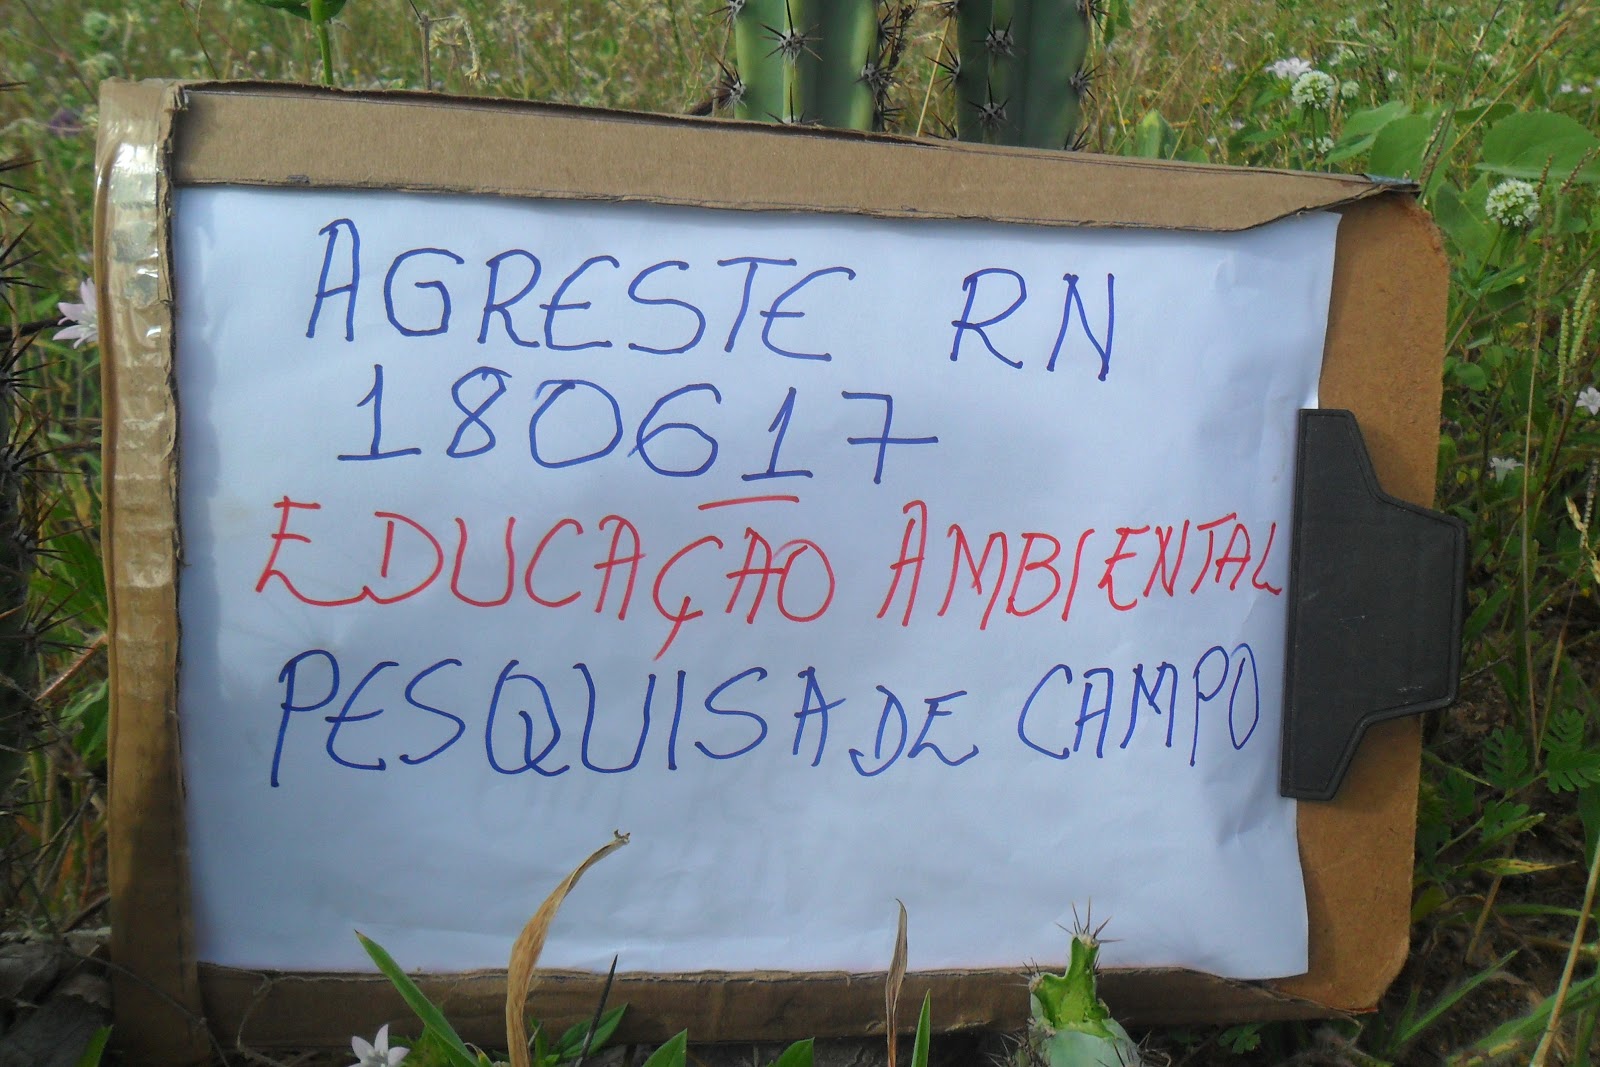 AGRESTE RN
180617
EDUCAÇÃO AMBIENTAL
PESQUISA DE CAMPO